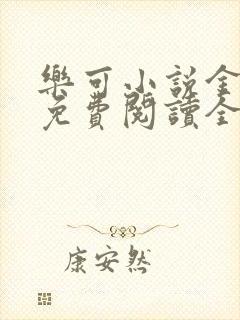 樂可小說全
免費閱讀全
康安然